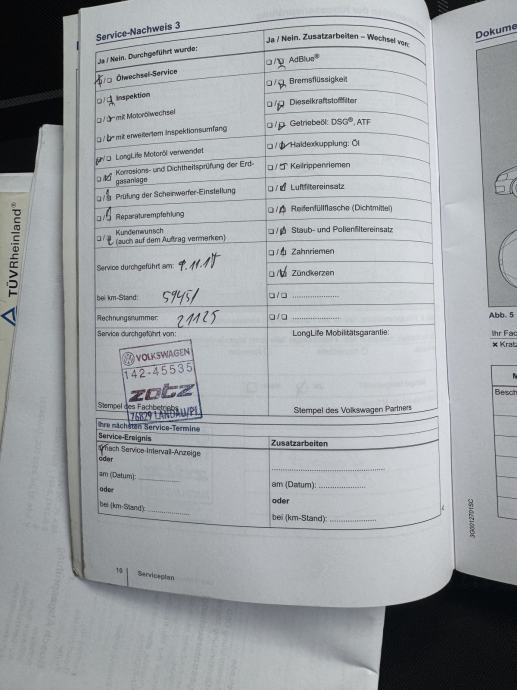 Service-Nachweis 3
Ja / Nein. Durchgeführt wurde:
Ölwechsel-Service
Inspektion
mit Motorölwechsel
mit erweitertem Inspektionsumfang
LongLife Motoröl verwendet
Korrosions- und Dichtheitsprüfung der Erd-
gasanlage
Prüfung der Scheinwerfer-Einstellung
Reparaturempfehlung
Kundenwunsch
(auch auf dem Auftrag vermerken)
Service durchgeführt am:
bei km-Stand: 59451
Rechnungsnummer: 21125
Service durchgeführt von:
VOLKSWAGEN
142-45535
zotz
76829 LANDAU/PF.
Stempel des Fachbetriebs
Ja / Nein. Zusatzarbeiten – Wechsel von:
AdBlue®
Bremsflüssigkeit
Dieselkraftstofffilter
Getriebeöl: DSG®, ATF
Haldexkupplung: Öl
Keilrippenriemen
Luftfiltereinsatz
Reifenfüllflasche (Dichtmittel)
Staub- und Pollenfiltereinsatz
Zahnriemen
Zündkerzen
LongLife Mobilitätsgarantie:
Stempel des Volkswagen Partners
Ihre nächsten Service-Termine
Service-Ereignis
nach Service-Intervall-Anzeige
oder
am (Datum):
oder
bei (km-Stand):
Zusatzarbeiten
am (Datum):
oder
bei (km-Stand):
Serviceplan
TÜVRheinland®
Dokume
Abb. 5
Ihr Fac
× Kratz
Besch
3G0012701SC